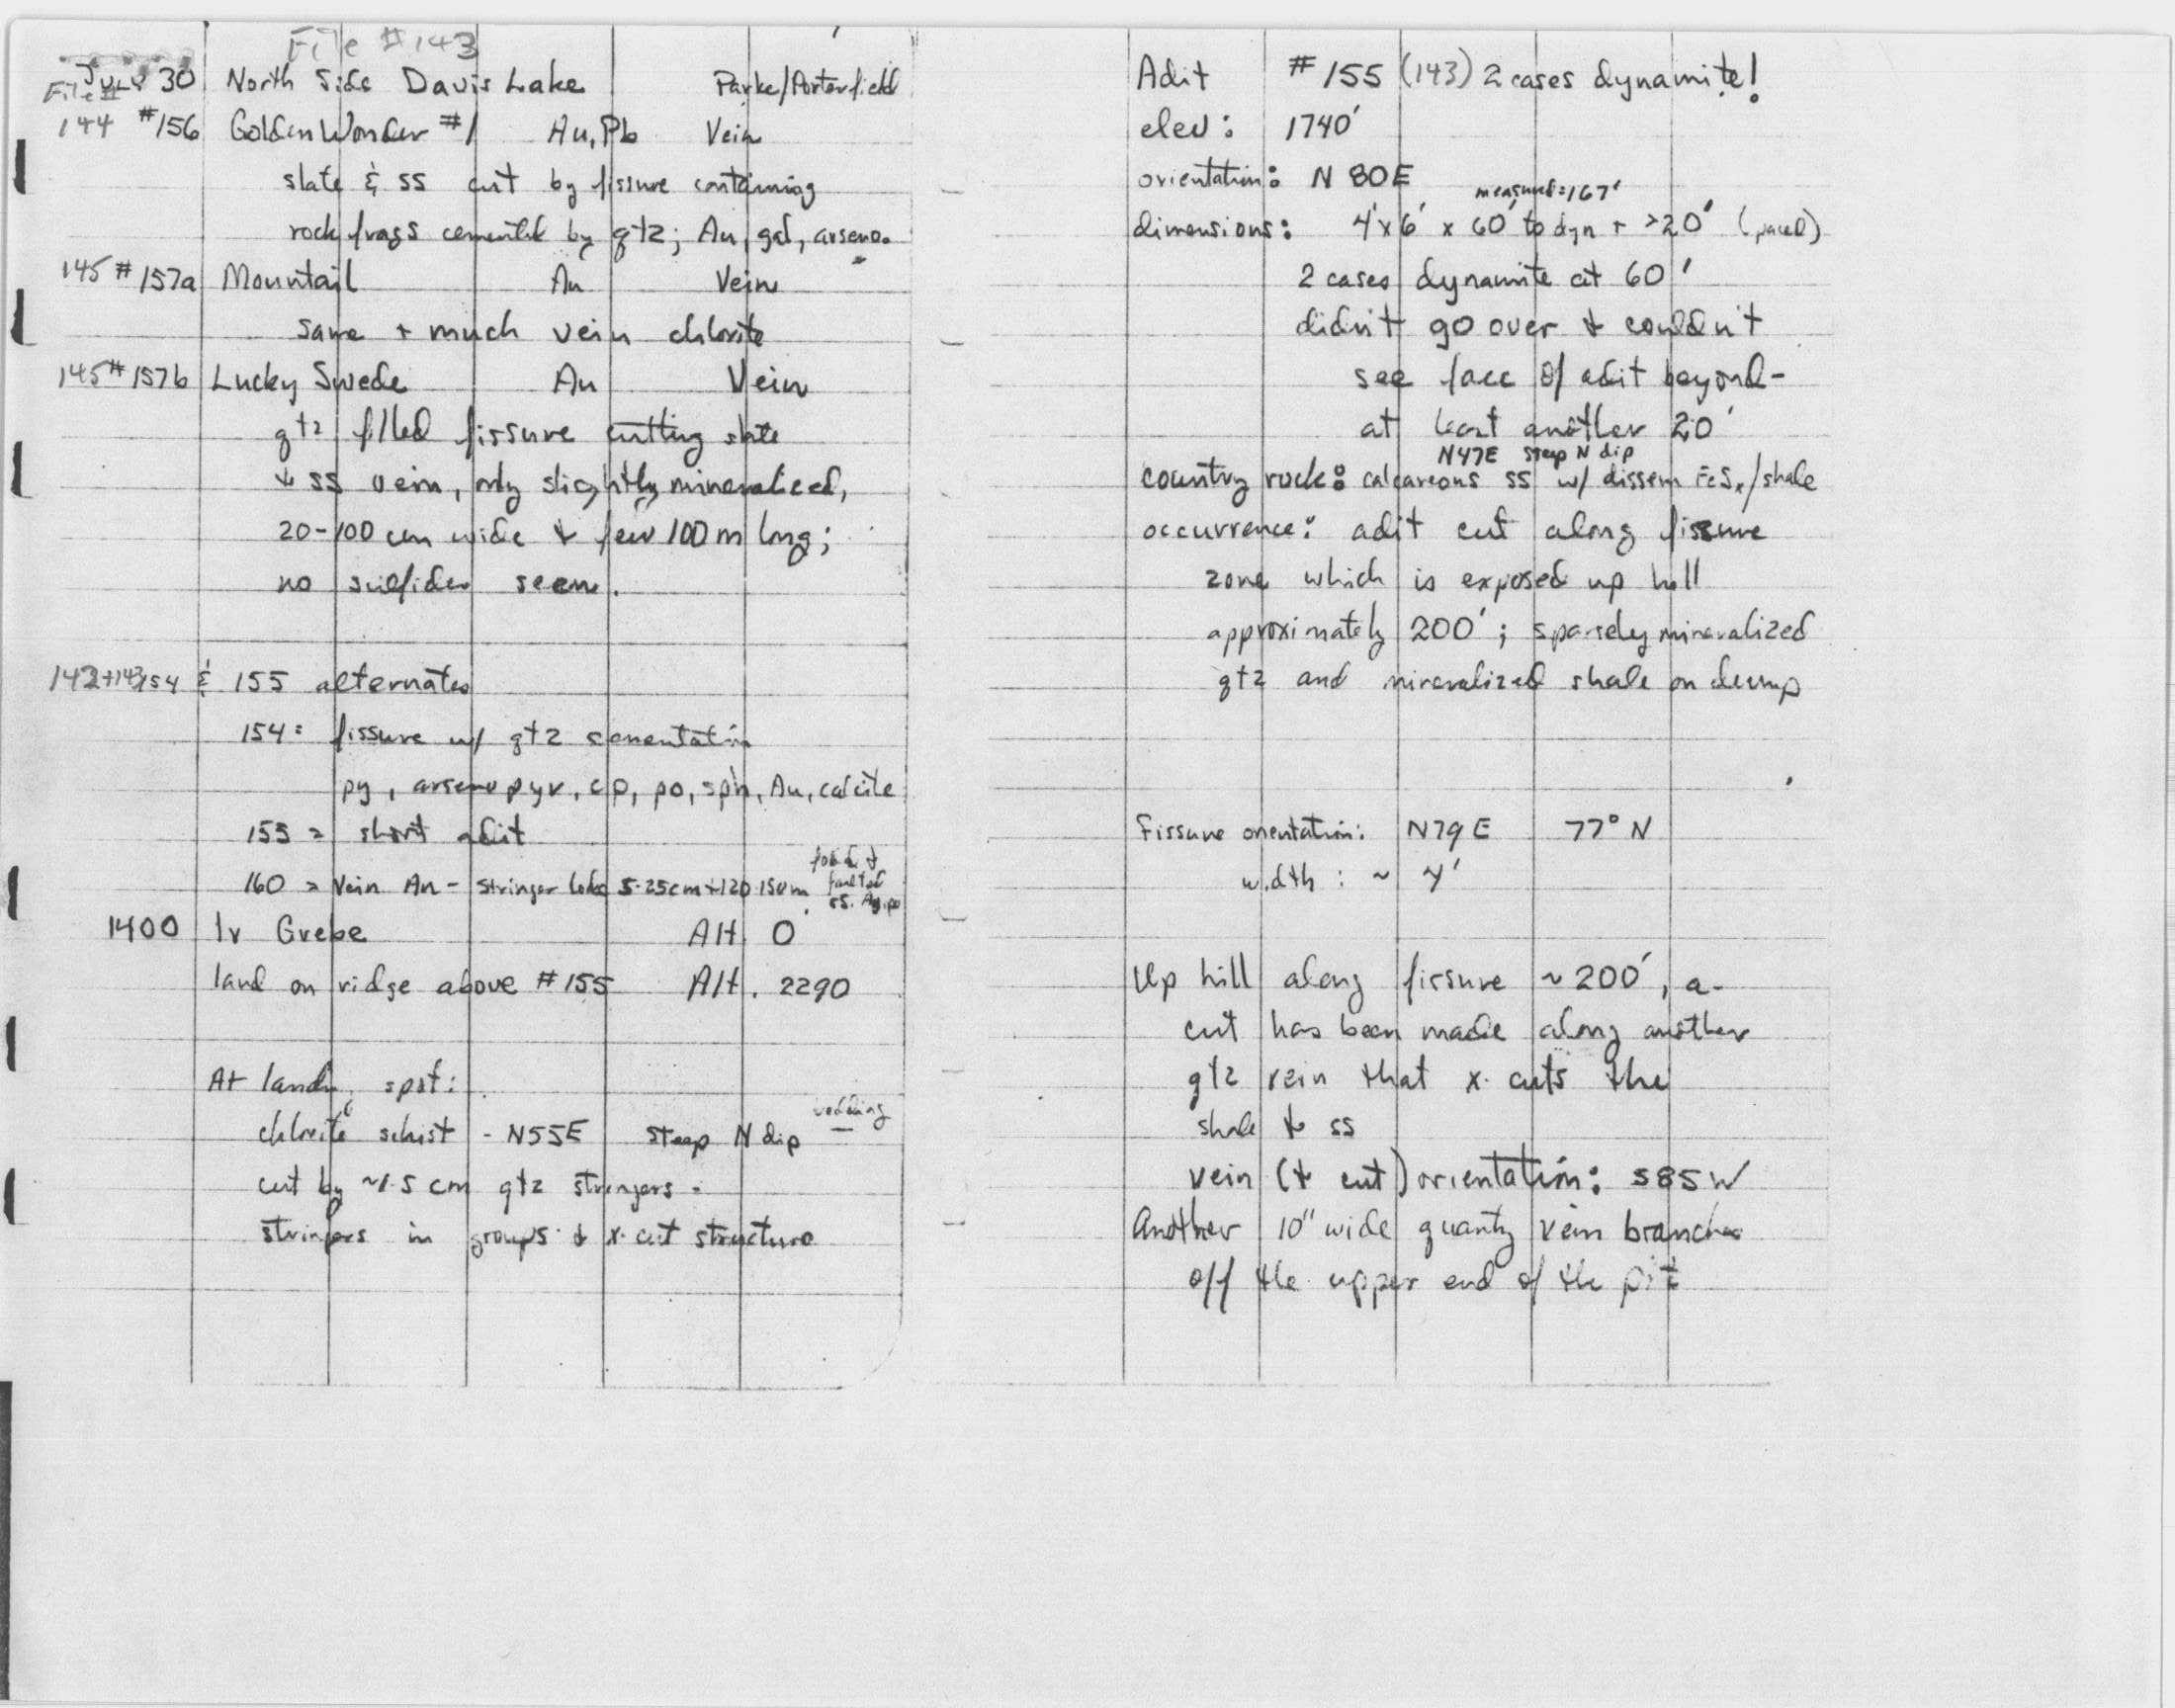 File #143
July 30 North Side Davis Lake Parke/Porterfield
File #
144 #156 Golden Wonder #1 Au, Pb Vein
slate & ss cut by fissure containing
rock frags cemented by qtz; Au, gal, arseno.
145 #157a Mountail Au Vein
same + much vein chlorite
145 #157b Lucky Swede Au Vein
qtz filled fissure cutting slate
& ss vein, only slightly mineralized,
20-100 cm wide & few 100 m long;
no sulfides seen.
142+143 154 & 155 alternates
154: fissure w/ qtz cementation
py, arsenopyr, cp, po, sph, Au, calcite
155 = short adit
160 = Vein Au - stringer lode 5-25cm + 120 150 m
faulted
ss.
1400 lv Grebe Alt. 0
land on ridge above #155 Alt. 2290
At landing spot:
chlorite schist - N55E steep N dip
cut by ~1.5 cm qtz stringers -
stringers in groups & x-cut structure
Adit #155 (143) 2 cases dynamite!
elev: 1740'
orientation: N 80E
measured=167'
dimensions: 4'x6' x 60' to dyn + >20' (paced)
2 cases dynamite at 60'
didn't go over & couldn't
see face of adit beyond-
at least another 20'
N47E steep N dip
country rock: calcareous ss w/ dissem FeSx/shale
occurrence: adit cut along fissure
zone which is exposed up hill
approximately 200'; sparsely mineralized
qtz and mineralized shale on dump
Fissure orientation: N79E 77° N
width: ~ 4'
Up hill along fissure ~200', a-
cut has been made along another
qtz vein that x-cuts the
shale & ss
vein (& cut) orientation: S85W
Another 10" wide quartz vein branches
off the upper end of the pit